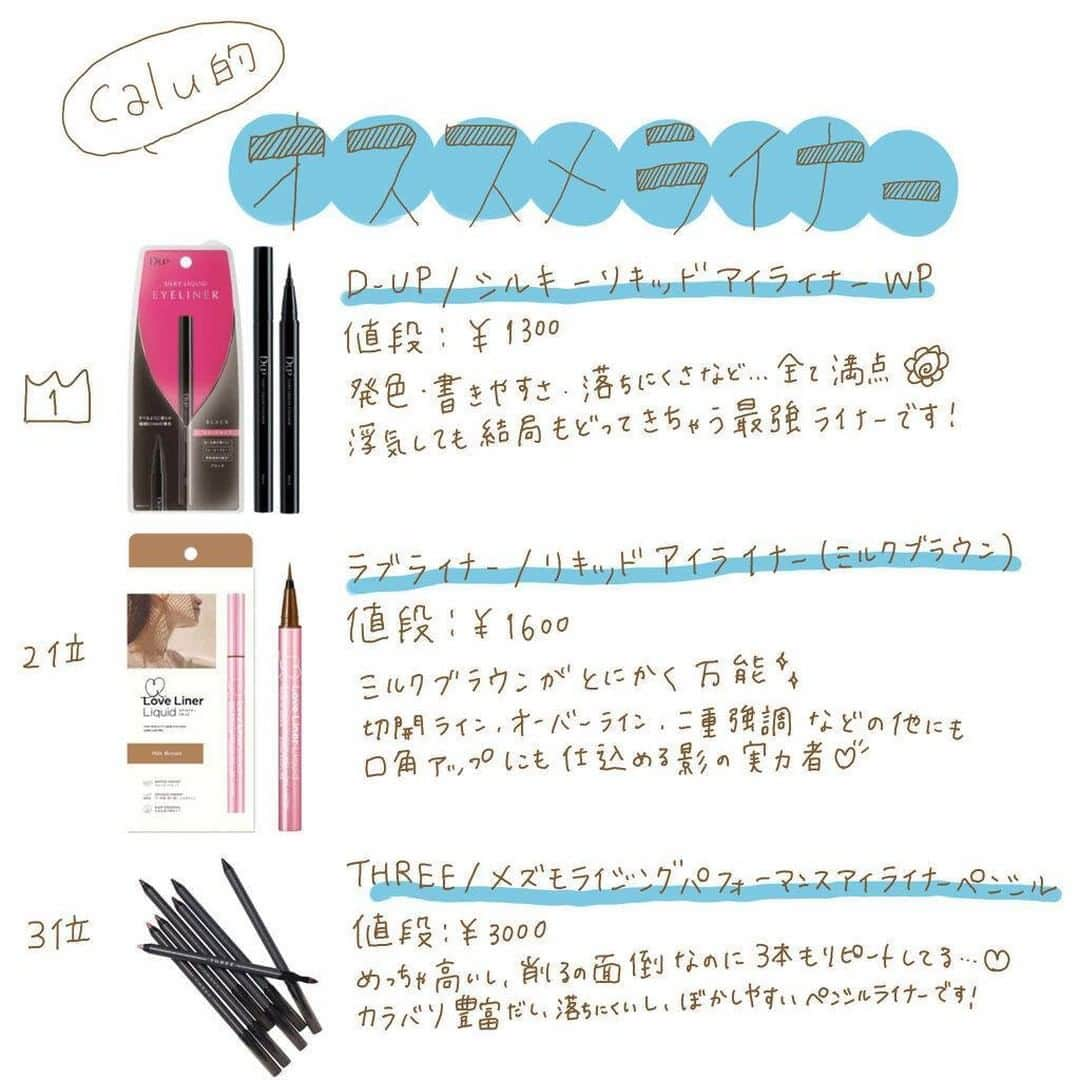 Calu的
オススメライナー
D-UP
SILKY LIQUID
EYELINER
BLACK
D-UP
1
D-UP/シルキーリキッドアイライナーWP
値段:¥1300
発色・書きやすさ・落ちにくさなど…全て満点
浮気しても結局もどってきちゃう最強ライナーです!
2位
Love Liner
Liquid
Milk Brown
Love Liner Liquid
ラブライナー/リキッドアイライナー(ミルクブラウン)
値段:¥1600
ミルクブラウンがとにかく万能
切開ライン,オーバーライン,二重強調などの他にも
口角アップにも仕込める影の実力者
3位
THREE
THREE/メズモライジングパフォーマンスアイライナーペンシル
値段:¥3000
めっちゃ高いし,削るの面倒なのに3本もリピートしてる…
カラバリ豊富だし、落ちにくいし、ぼかしやすいペンシルライナーです!